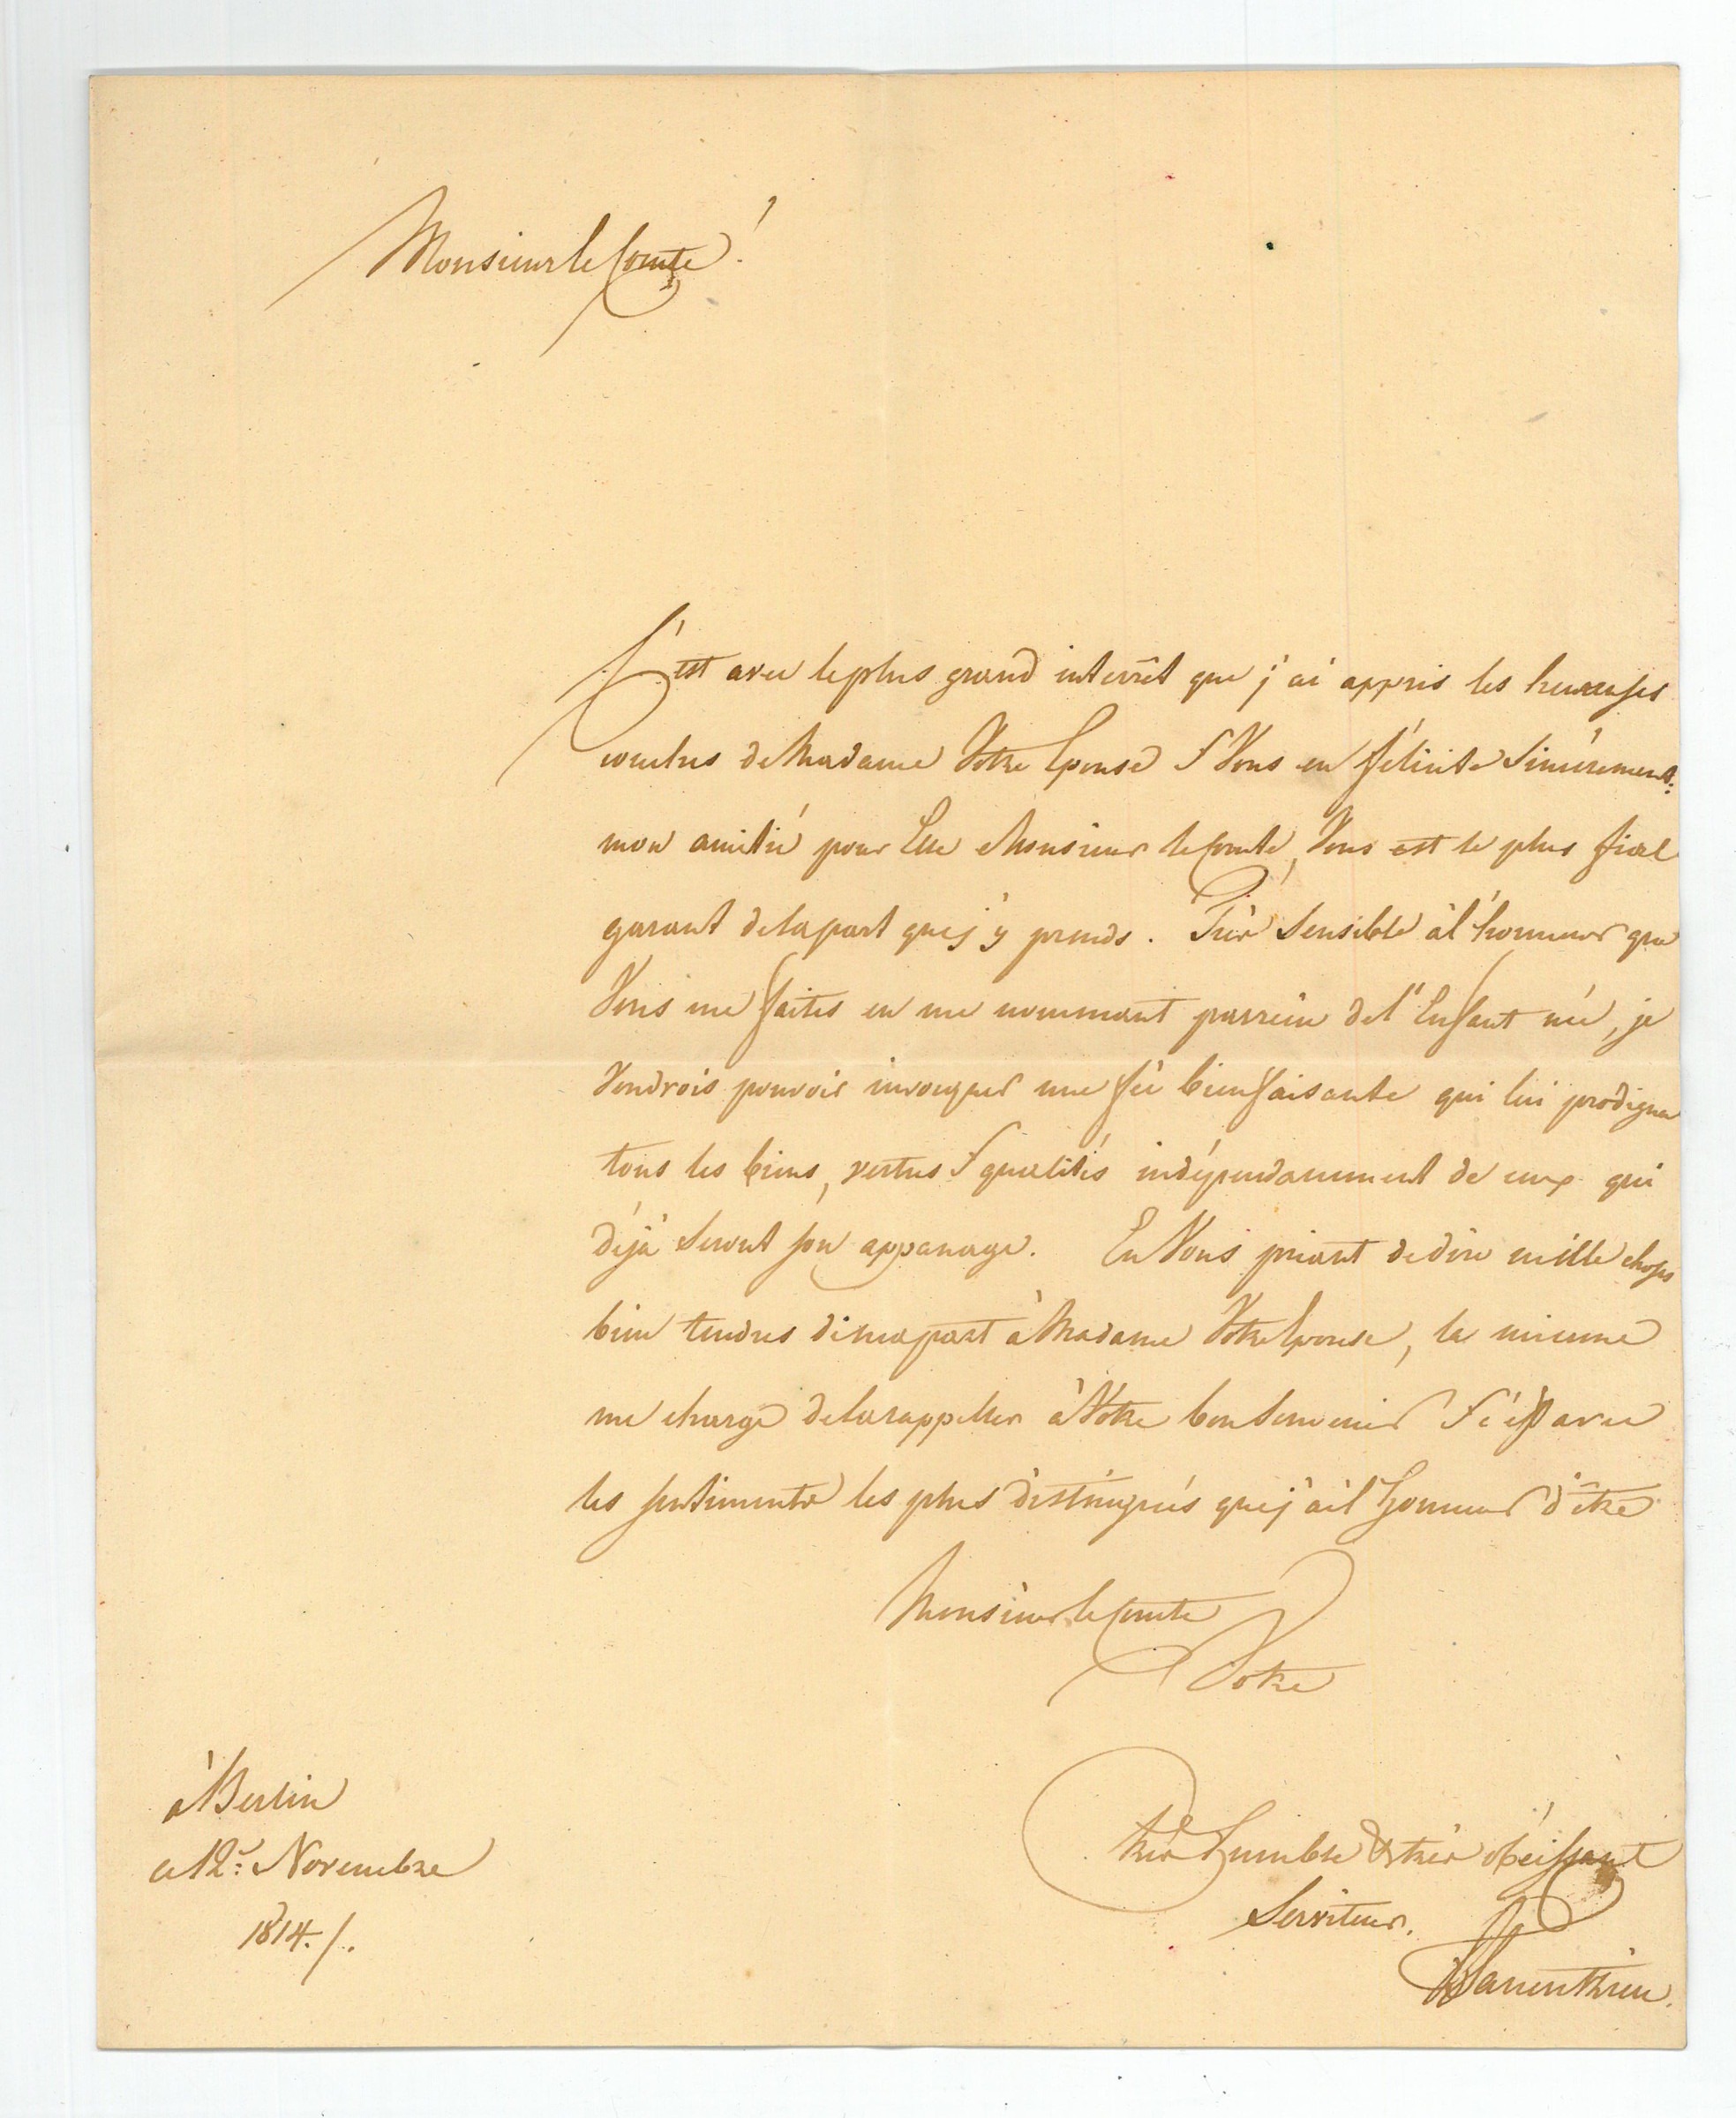 Monsieur le Comte!
C'est avec le plus grand interrêt que j'ai appris les heureuses
couches de Madame Votre Epouse & Vous en félicite sincérement:
mon amitié pour Elle & Monsieur le Comte, Vous est le plus
garant de la part que j'y prends. Très sensible à l'honneur que
Vous me faites en me nommant parrein de l'Enfant née, je
Voudrois pouvoir invoquer une fée bienfaisante qui lui prodigua
tous les biens, vertus & qualités indépendamment de ceux qui
déjà seront son appanage. En Vous priant de dire mille choses
bien tendres de ma part à Madame Votre Epouse, la mienne
me charge de la rappeller à Votre bon souvenir & c'est avec
les sentiments les plus distingués que j'ai l'honneur d'être
Monsieur le Comte
Votre
très humble & très obéissant
Serviteur.
à Berlin
ce 12: Novembre
1814./.